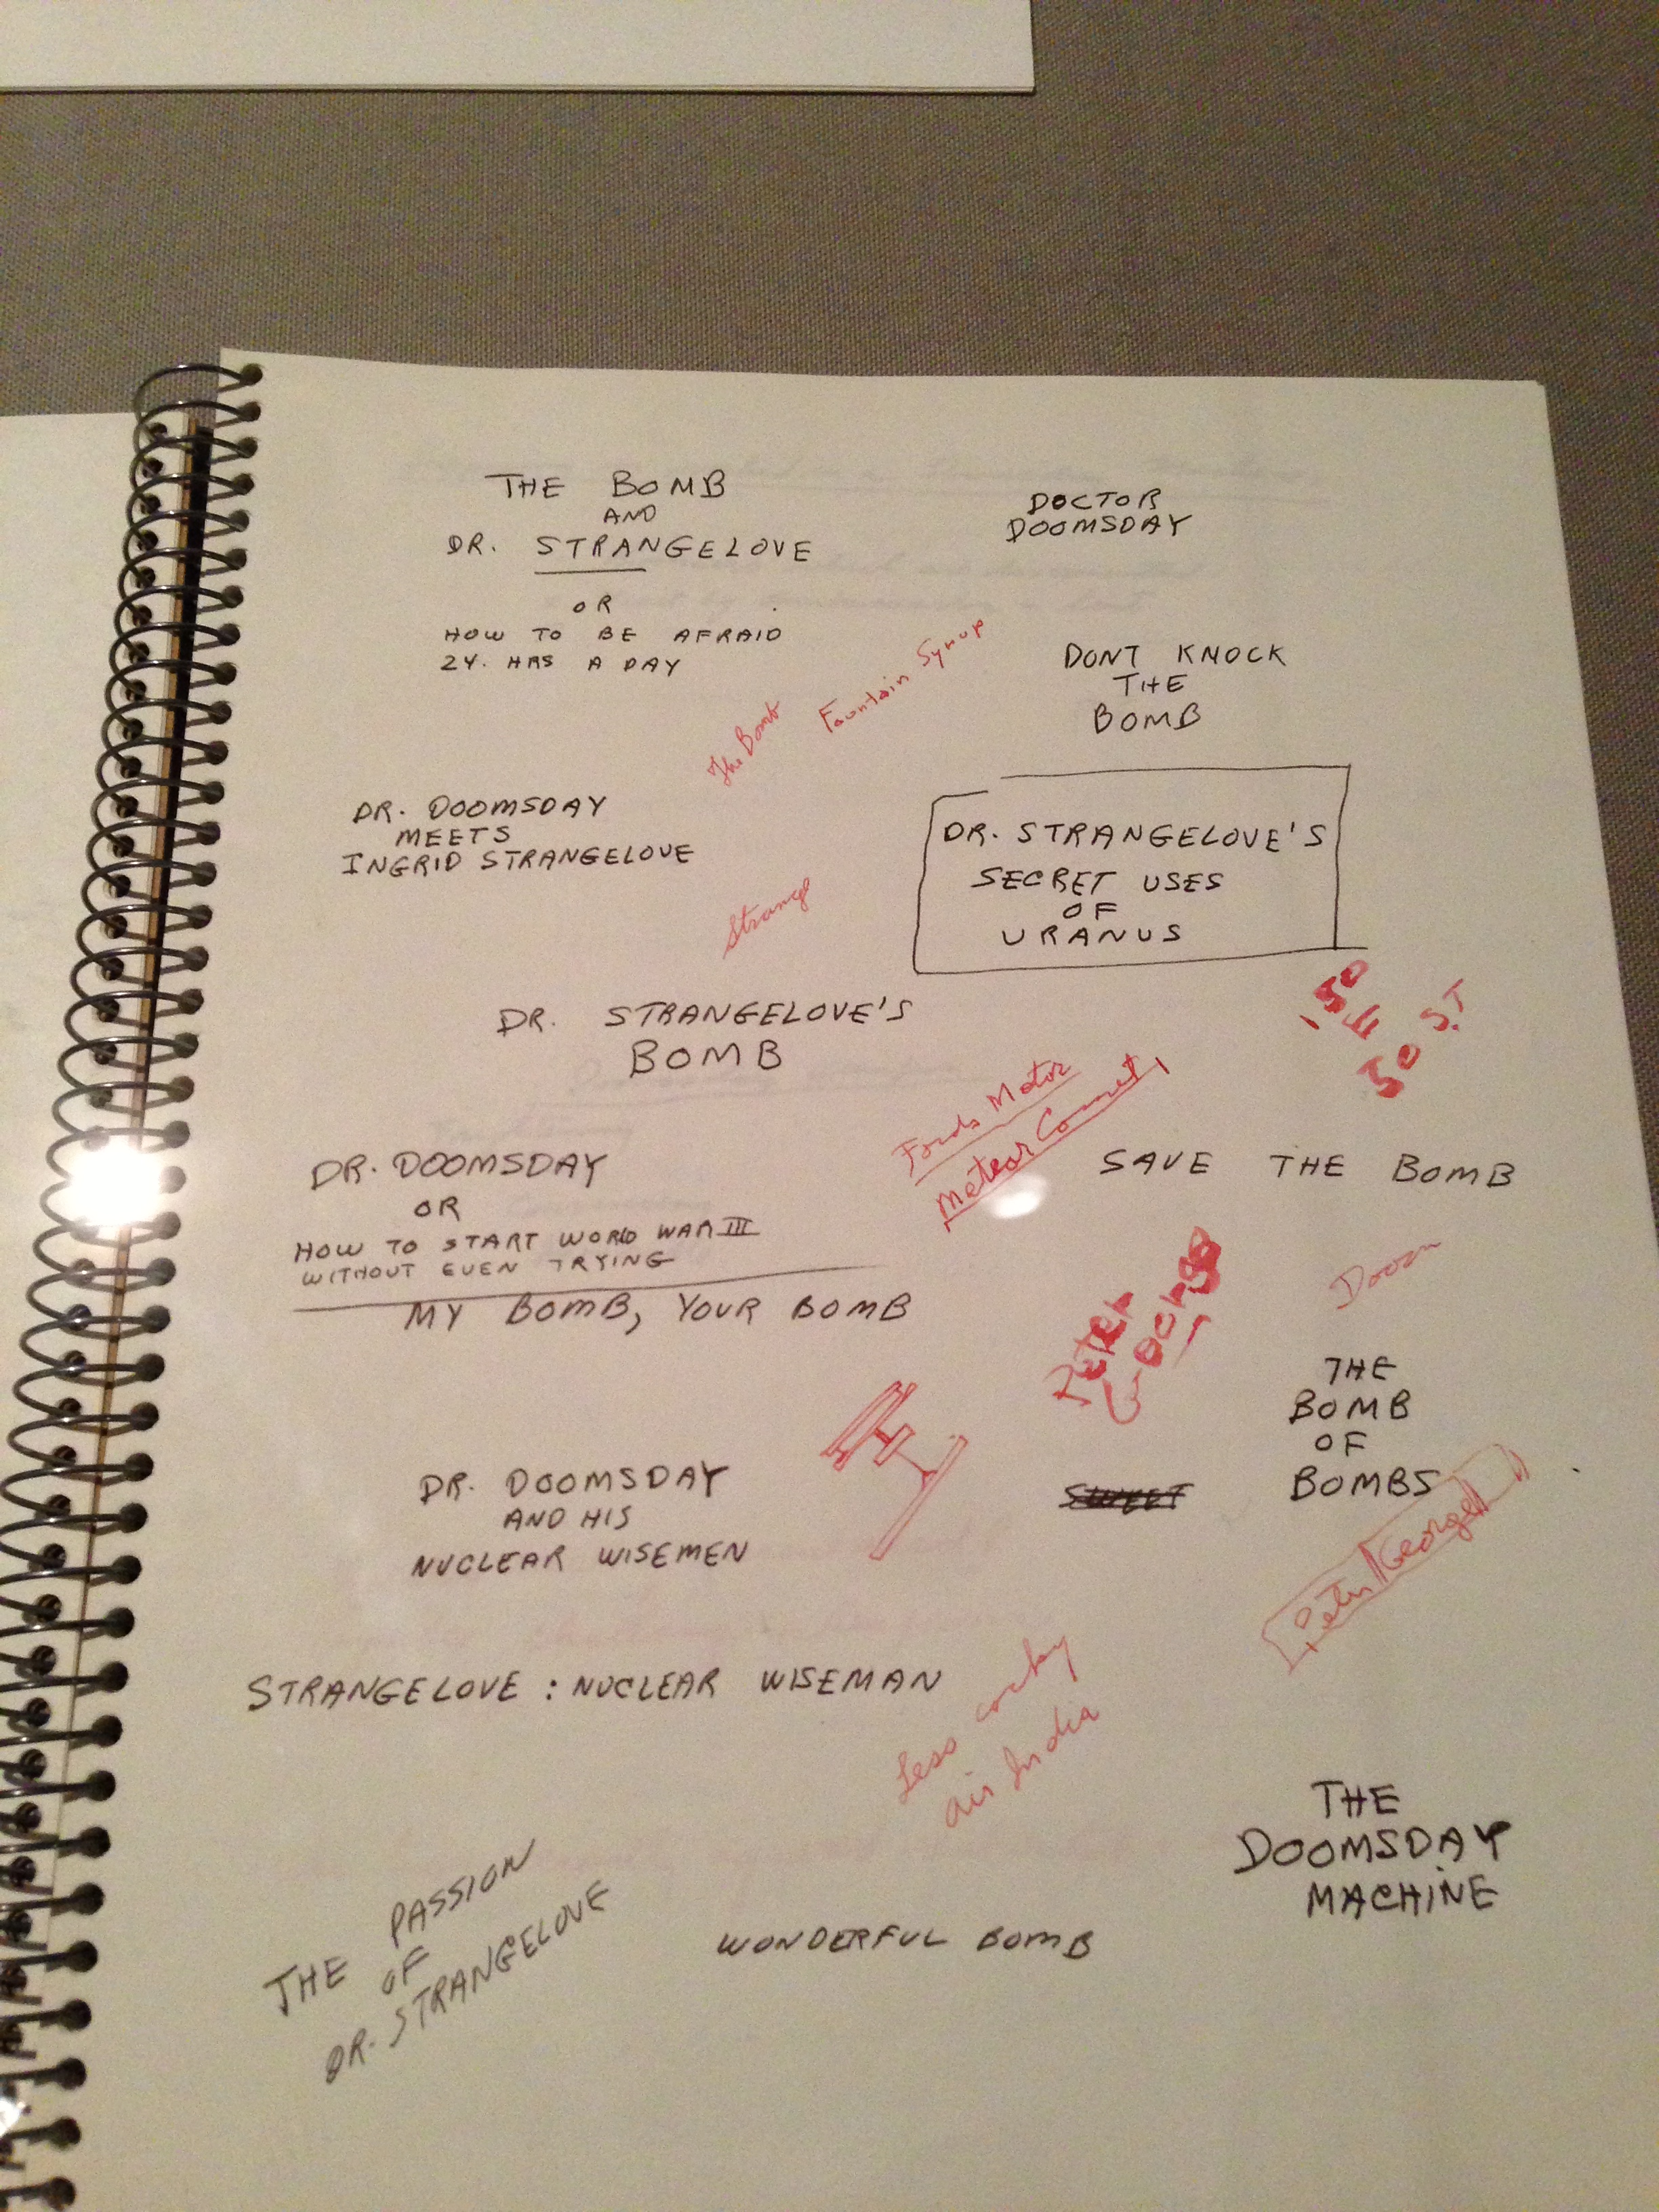 THE BOMB
AND
DR. STRANGELOVE
OR
HOW TO BE AFRAID
24. HRS A DAY
DOCTOR
DOOMSDAY
Fountain Syrup
The Bomb
DONT KNOCK
THE
BOMB
DR. DOOMSDAY
MEETS
INGRID STRANGELOVE
DR. STRANGELOVE'S
SECRET USES
OF
URANUS
Strange
DR. STRANGELOVE'S
BOMB
150
E
50 ST
Fords Motor
Meteor Comet
DR. DOOMSDAY
OR
HOW TO START WORLD WAR III
WITHOUT EVEN TRYING
SAVE THE BOMB
MY BOMB, YOUR BOMB
Peter
George
Doom
THE
BOMB
OF
BOMBS
DR. DOOMSDAY
AND HIS
NUCLEAR WISEMEN
SWEET
Peter George
STRANGELOVE : NUCLEAR WISEMAN
Less
air India
THE
DOOMSDAY
MACHINE
THE PASSION
OF
DR. STRANGELOVE
WONDERFUL BOMB